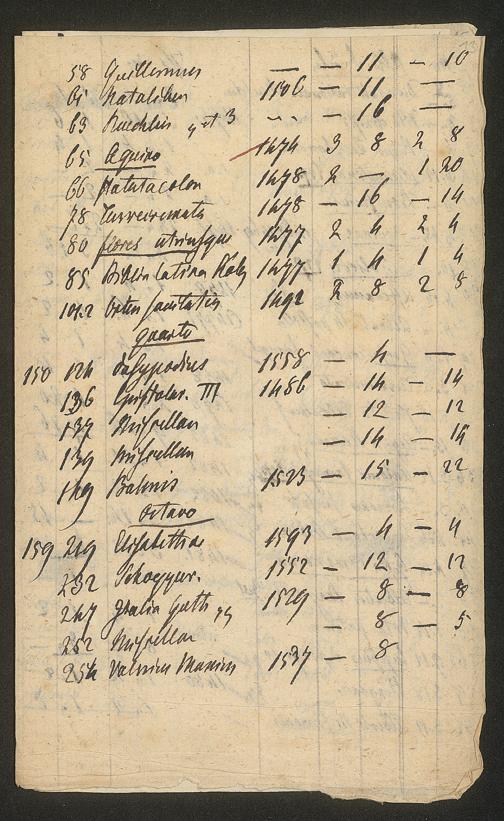 58 Guillermus — — 11 — 10
61 Natalibus 1506 — 11 —
63 et 3 — 16 —
65 Aquino 1474 3 8 2 8
66 1478 2 — 1 20
78 Turrecremata 1478 — 16 — 14
80 flores utriusque 1477 2 4 2 4
85 Biblia latina 1477 1 4 1 4
101.2 Ortus sanitatis 1492 2 8 2 8
Quarto
150 124 Dasypodius 1558 — 4 —
136 Epistolar. III 1486 — 14 — 14
137 Miscellan — 12 — 12
139 Miscellan — 14 — 14
149 1523 — 15 — 22
Octavo
159 219 Elisabethae 1593 — 4 — 4
232 Schoepper. 1552 — 12 — 12
247 1529 — 8 — 8
252 Miscellan — 8 — 5
254 Valerius Maximus 1537 — 8